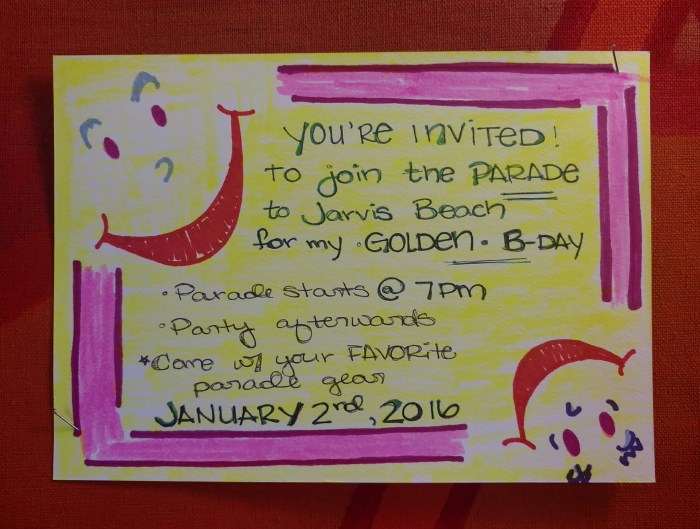 YOU'RE INVITED!
to join the PARADE
to Jarvis Beach
for my • GOLDEN • B-DAY
• Parade starts @ 7pm
• Party afterwards
* Come w/ your FAVORITE
parade gear
JANUARY 2nd, 2016